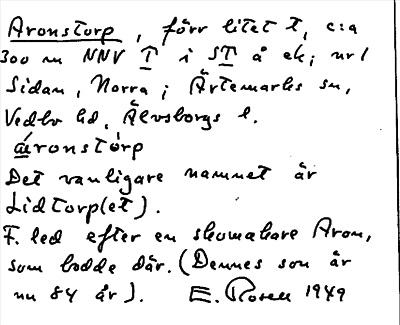 Aronstorp, förr litet t, c:a
300 m NNV T i ST å ek; url
Sidan, Norra; Ärtemarks sn,
Vedbo hd, Älvsborgs l.
áronstòrp
Det vanligare namnet är
Lidtorp(et).
F. led efter en skomakare Aron,
som bodde där. (Dennes son är
nu 84 år). E. Rosell 1949